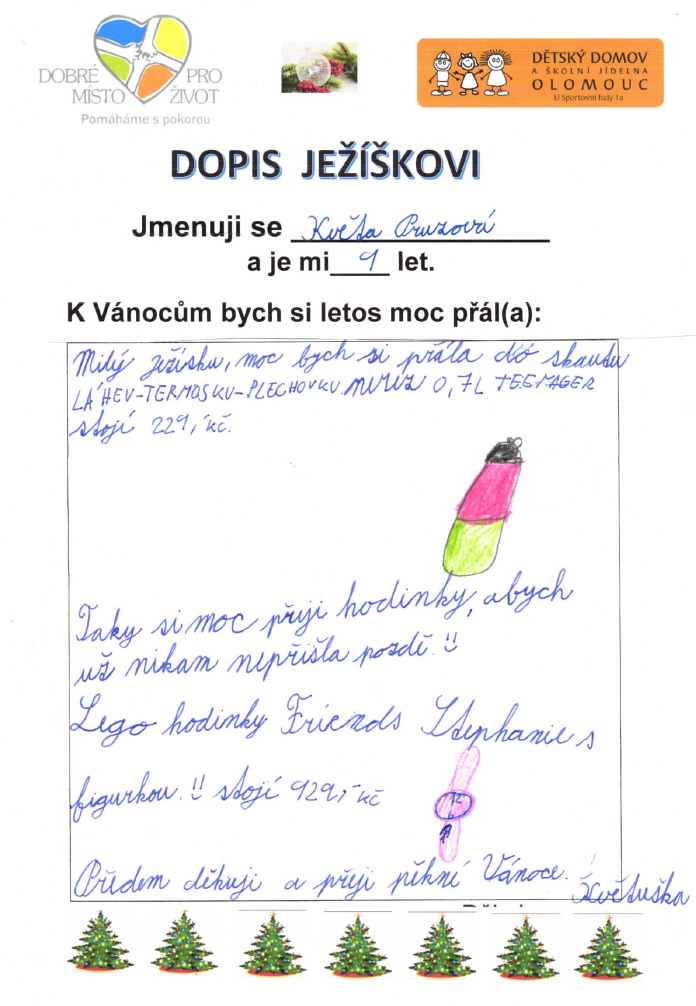 DOBRÉ PRO
MÍSTO ŽIVOT
Pomáháme s pokorou
DĚTSKÝ DOMOV
A ŠKOLNÍ JÍDELNA
OLOMOUC
U Sportovní haly 1a
DOPIS JEŽÍŠKOVI
Jmenuji se Květa
a je mi 9 let.
K Vánocům bych si letos moc přál(a):
Milý ježísku, moc bych si přála do skautu
LÁHEV-TERMOSKU-PLECHOVKU 0,7L
stojí 229,-kč.
Taky si moc přeji hodinky, abych
už nikam nepřišla pozdě.!!
Lego hodinky Friends Stephanie s
figurkou.!! stojí 929,-kč
12
Předem děkuji a přeji pěkní Vánoce.!
Květuška